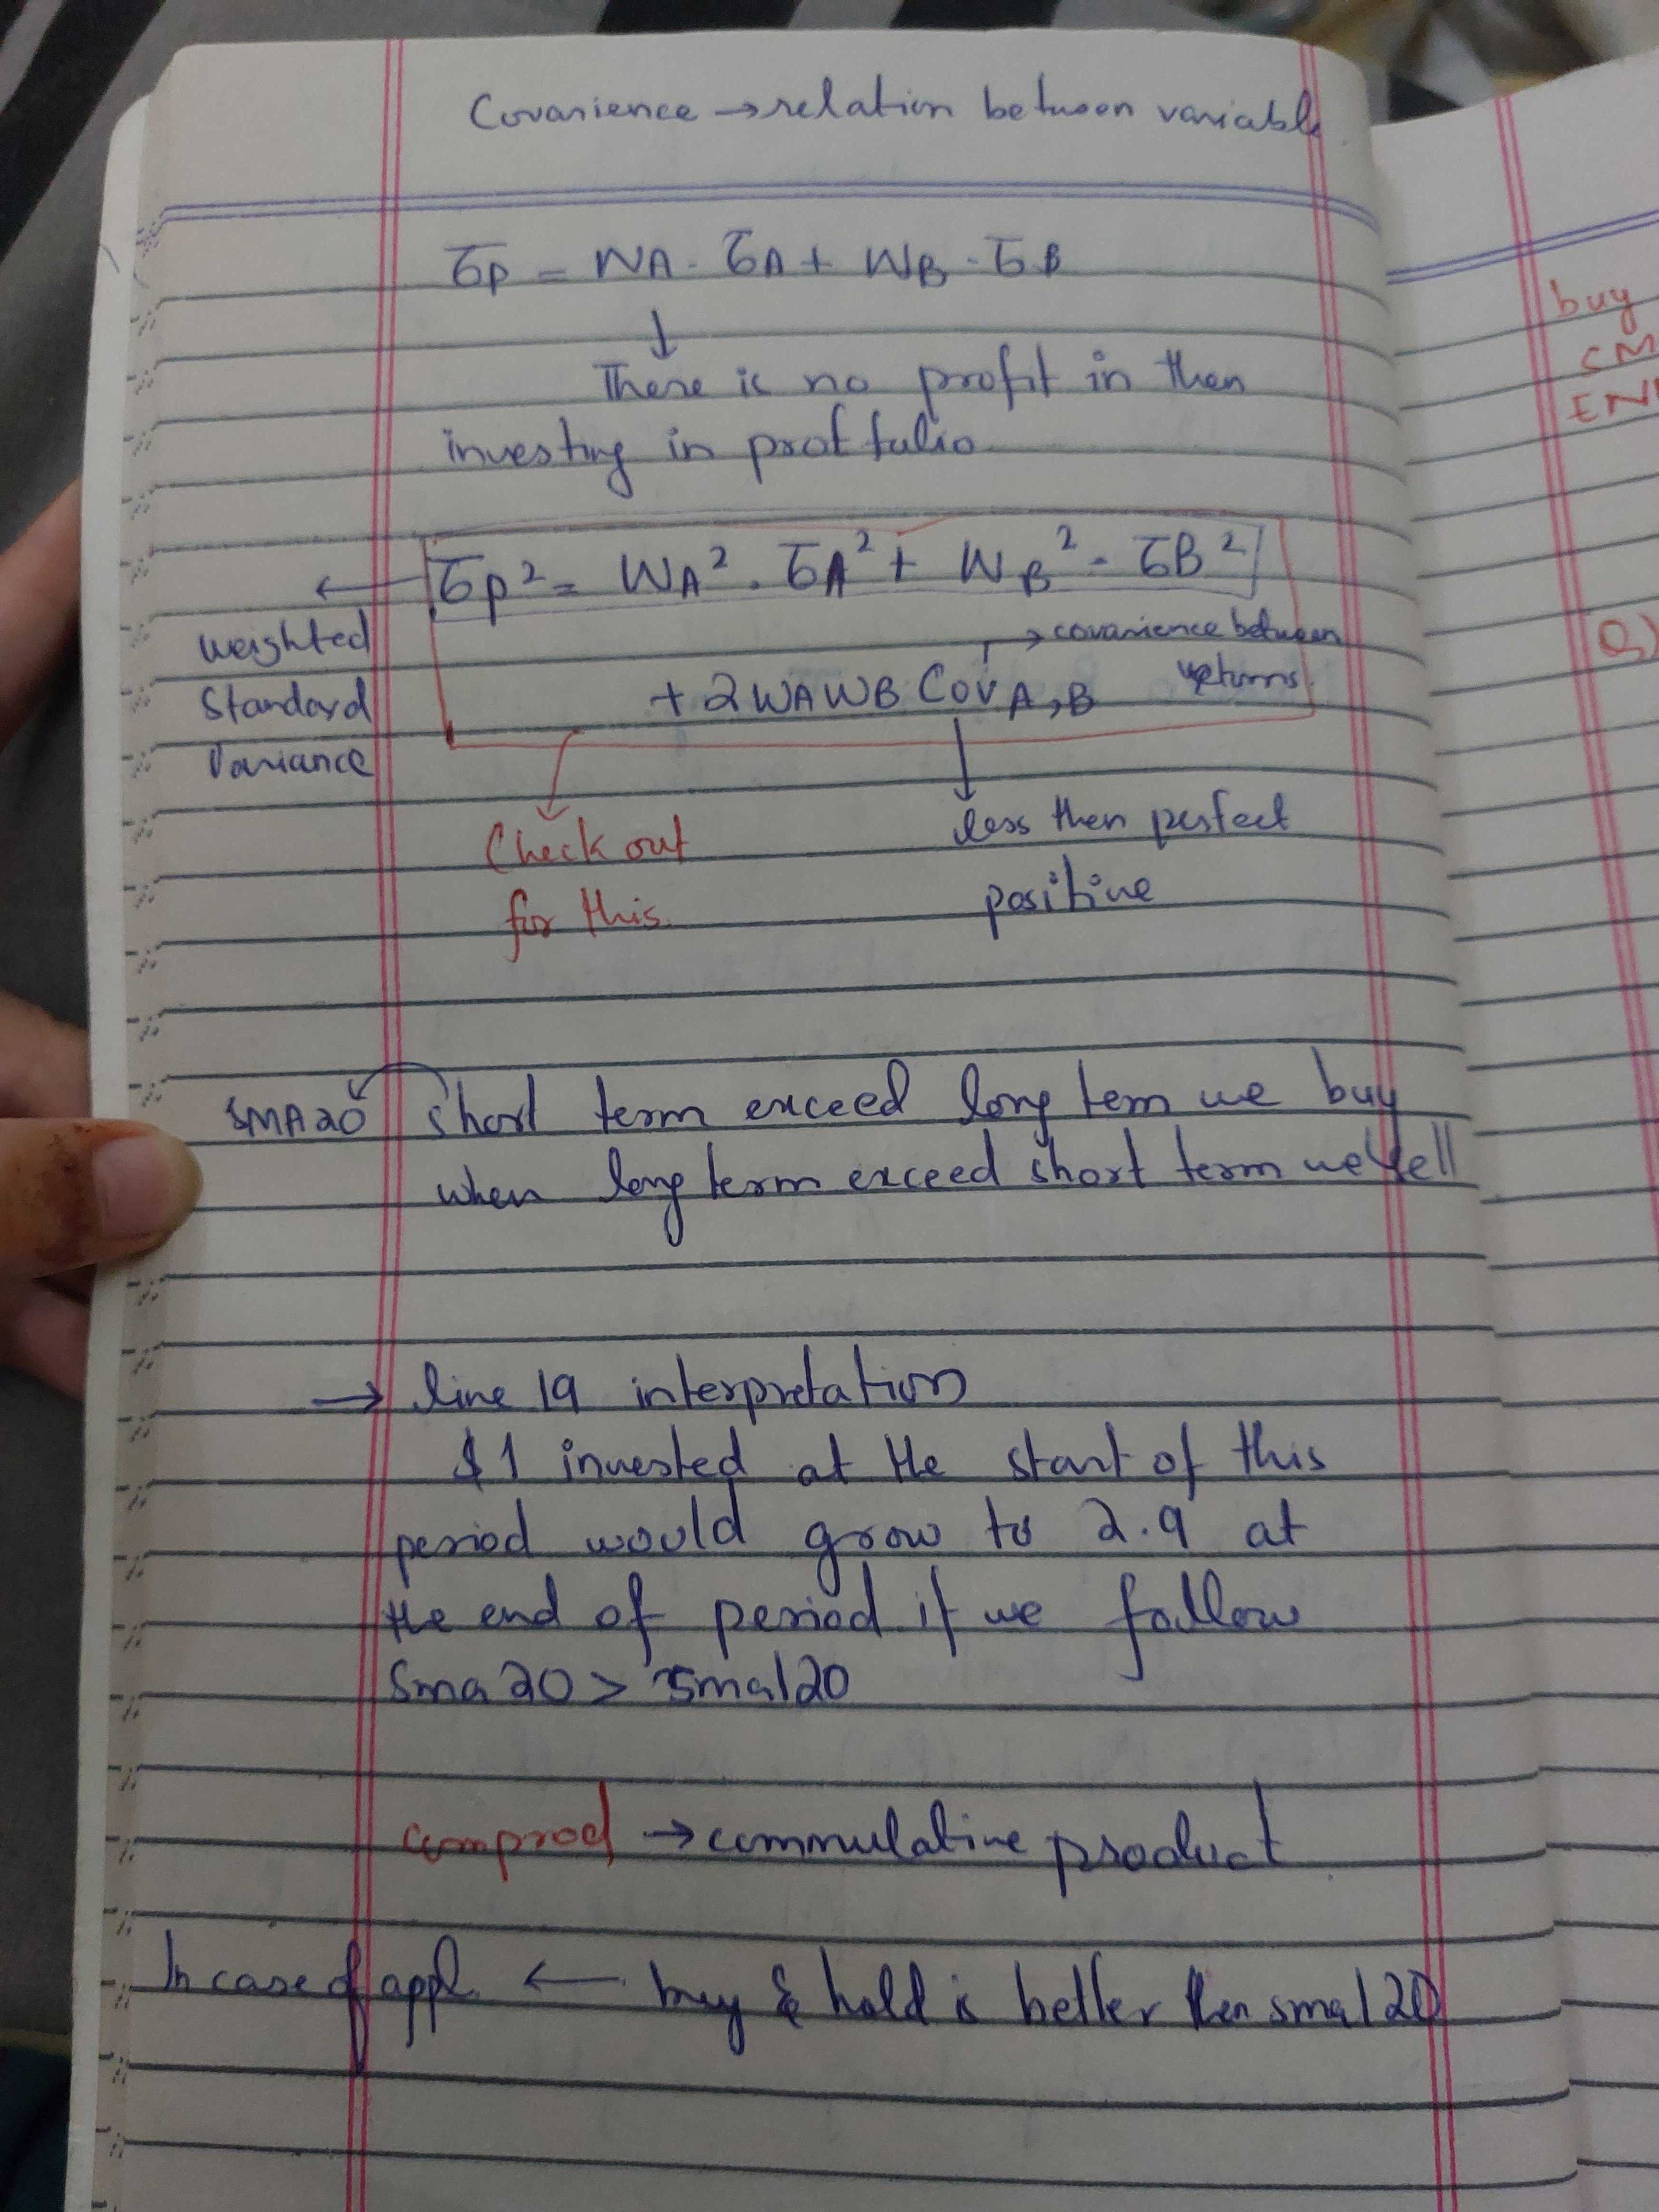 Covarience → relation between variable
σP = WA . σA + WB . σB
↓
There is no profit in then
investing in protfulio
σP² = WA² . σA² + WB² . σB²
← weighted
Standard
Variance
→ covarience between
returns
+ 2WAWB CovA,B
Check out
for this.
less then perfect
positive
SMA20
short term exceed long tem we buy
when long term exceed short term we sell
→ line 19 interpretation
$1 invested at the start of this
period would grow to 2.9 at
the end of period if we follow
Sma20 > sma120
cumprod → commulative product
In case of appl. ← buy & hold is better then sma120
buy
Q)